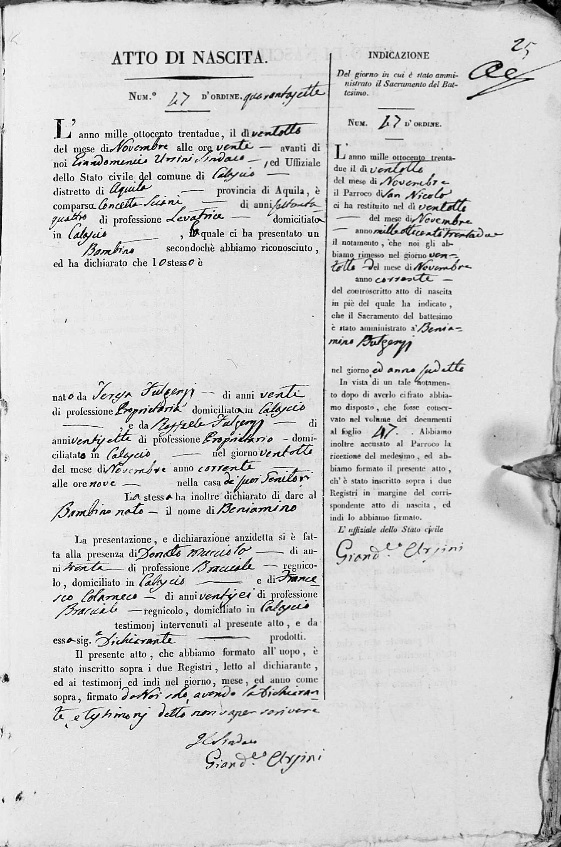 25
ATTO DI NASCITA.
NUM.° 47 D'ORDINE quarantasette
L'anno mille ottocento trentadue, il dì ventotto
del mese di Novembre alle ore venti – avanti di
noi Giandomenico Ursini Sindaco – , ed Uffiziale
dello Stato civile del comune di Calascio –
distretto di Aquila – provincia di Aquila, è
comparsa Concetta di anni settanta
quattro di professione Levatrice domiciliata
in Calascio – , la quale ci ha presentato un
Bambino – secondochè abbiamo riconosciuto,
ed ha dichiarato che lo stesso è
nato da Teresa Fulgenzj – di anni venti
di professione Proprietaria domiciliata in Calascio
– , e da Raffaele Fulgenzj di
anni ventisette di professione Proprietario – domi-
ciliato in Calascio – nel giorno ventotto
del mese di Novembre anno corrente –
alle ore nove – nella casa de' suoi Genitori
La stessa ha inoltre dichiarato di dare al
Bambino nato – il nome di Beniamino
La presentazione, e dichiarazione anzidetta si è fat-
ta alla presenza di Donato di an-
ni trenta – di professione Bracciale – regnico-
lo, domiciliato in Calascio – e di France
sco – di anni ventisei di professione
Bracciale – regnicolo, domiciliato in Calascio
testimonj intervenuti al presente atto, e da
essa sig.ª Dichiarante – prodotti.
Il presente atto, che abbiamo formato all'uopo, è
stato inscritto sopra i due Registri, letto al dichiarante,
ed ai testimonj ed indi nel giorno, mese, ed anno come
sopra, firmato da Noi solo, avendo la Dichiaran
te, e testimonj detto non saper scrivere
Il Sindaco
Giand.co Ursini
INDICAZIONE
Del giorno in cui è stato ammi-
nistrato il Sacramento del Bat-
tesimo.
NUM. 47 D'ORDINE.
L'anno mille ottocento trenta-
due il dì ventotto
del mese di Novembre
il Parroco di San Nicola
ci ha restituito nel dì ventotto
– del mese di Novembre
– anno mille ottocento trentadue
il notamento, che noi gli ab-
biamo rimesso nel giorno ven-
totto – del mese di Novembre
anno corrente –
del controscritto atto di nascita
in piè del quale ha indicato,
che il Sacramento del battesimo
è stato amministrato a' Benia-
mino Fulgenzj
nel giorno ed anno sudetto
In vista di un tale notamento
dopo di averlo cifrato abbia-
mo disposto, che fosse conser-
vato nel volume dei documenti
al foglio 47. – Abbiamo
inoltre accusato al Parroco la
ricezione del medesimo, ed ab-
biamo formato il presente atto,
ch'è stato inscritto sopra i due
Registri in margine del corri-
spondente atto di nascita, ed
indi lo abbiamo firmato.
L'uffiziale dello Stato civile
Giand.co Ursini